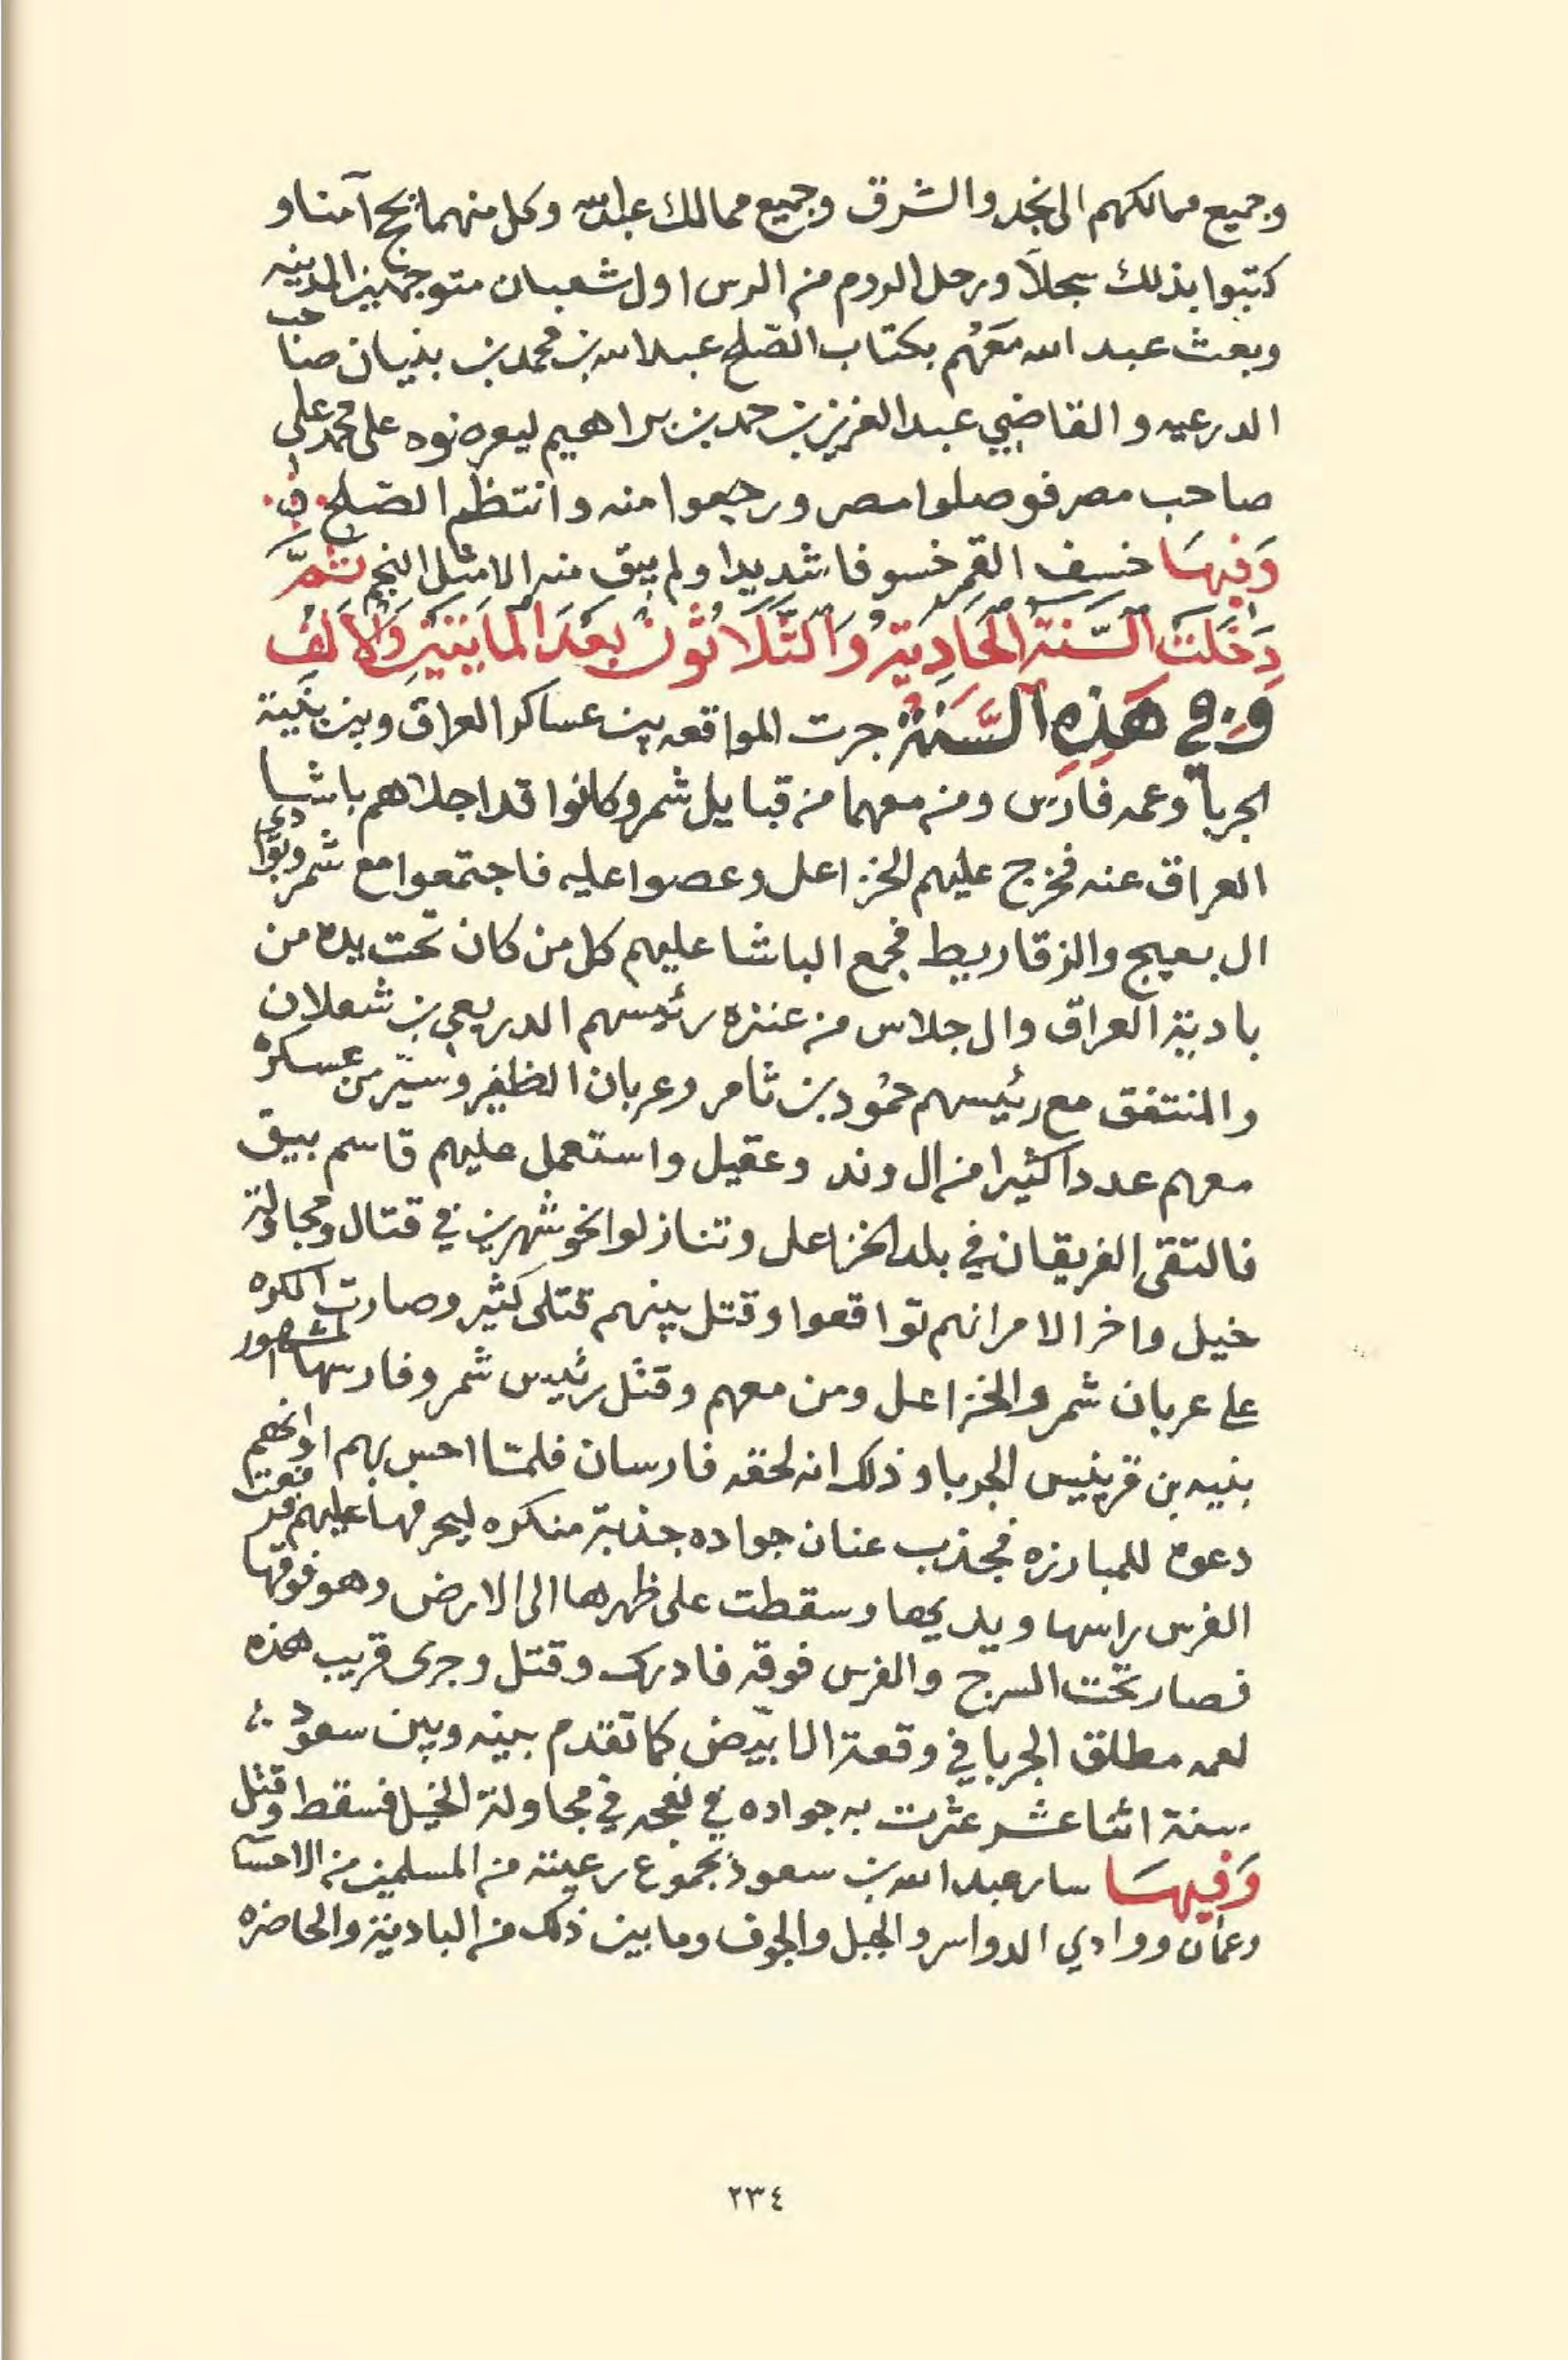 وجميع ممالكهم الى نجد والشرق وجميع ممالك عبدالله وكل منهما يحج آمنا و
كتبوا بذلك سجلاً ورحل الروم من الرس اول شعبان متوجهين المدينه
وبعث عبد الله مَعَهُم بكتاب الصّلح عبدالله بن محمد بن بنيان صاحب
الدرعيه والقاضي عبدالعزيز بن حمد بن براهيم ليعرضوه على محمد علي
صاحب مصر فوصلوا مصر ورجعوا منه وانتظم الصّلح
وَفيهَا خسف القمر خسوفا شديدا ولم يبق منه الا مثل النجم ثمَّ
دَخَلَت السَّنة الحَادِيَة وَالثَّلَاثُون بَعْدَ المايَتَيْن وَالالف
وفي هَذِهِ السَّنَة جرت المواقعه بين عساكر العراق وبين بنَيّة
الجربا وعمه فارس ومن معهما من قبايل شمر وكانوا قد اجلاهم باشا
العراق عنه فخرج عليهم الخزاعل وعصوا عليه فاجتمعوا مع شمر وبوادي
ال بعيج والزقاريط فجمع الباشا عليهم كل من كان تحت يده من
بادية العراق وال جلاس من عنزه رئيسهم الدريعي بن شعلان
والمنتفق مع رئيسهم حمُود بن ثامر وعربان الظفير وسيّر من عسكره
معهم عددا كثيرا من ال وند وعقيل واستعمل عليهم قاسم بيق
فالتقى الفريقان في بلد الخزاعل وتنازلوا نحو شهرين في قتال ومجاولة
خيل واخر الامر انهم تواقعوا وقتل بينهم قتلى كثير وصارت الكره
على عربان شمر والخزاعل ومن معهم وقتل رئيس شمر وفارسها المشهور
بنيه بن قرينيس الجربا وذلك انه لحقه فارسان فلمّا احس بهم اوانهم
دعوه للمبارزه فجذب عنان جواده جذبة منكره ليحرفها عليهم فرفعت
الفرس راسها ويديها وسقطت على ظهرها الى الارض وهو فوقها
فصار تحت السرج والفرس فوقه فادرك وقتل وجرى قريب هذه
لعمه مطلق الجربا في وقعة الابيّض كما تقدم بينه وبين سعود
سنة اثنا عشر عثرت به جواده في نعجه في مجاولة الخيل فسقط وقتل
وَفيهَا سار عبدالله بن سعود بجموع رعيته من المسلمين من الاحسا
وعمان ووادي الدواسر والجبل والجوف وما بين ذلك من البادية والحاضره
٢٣٤